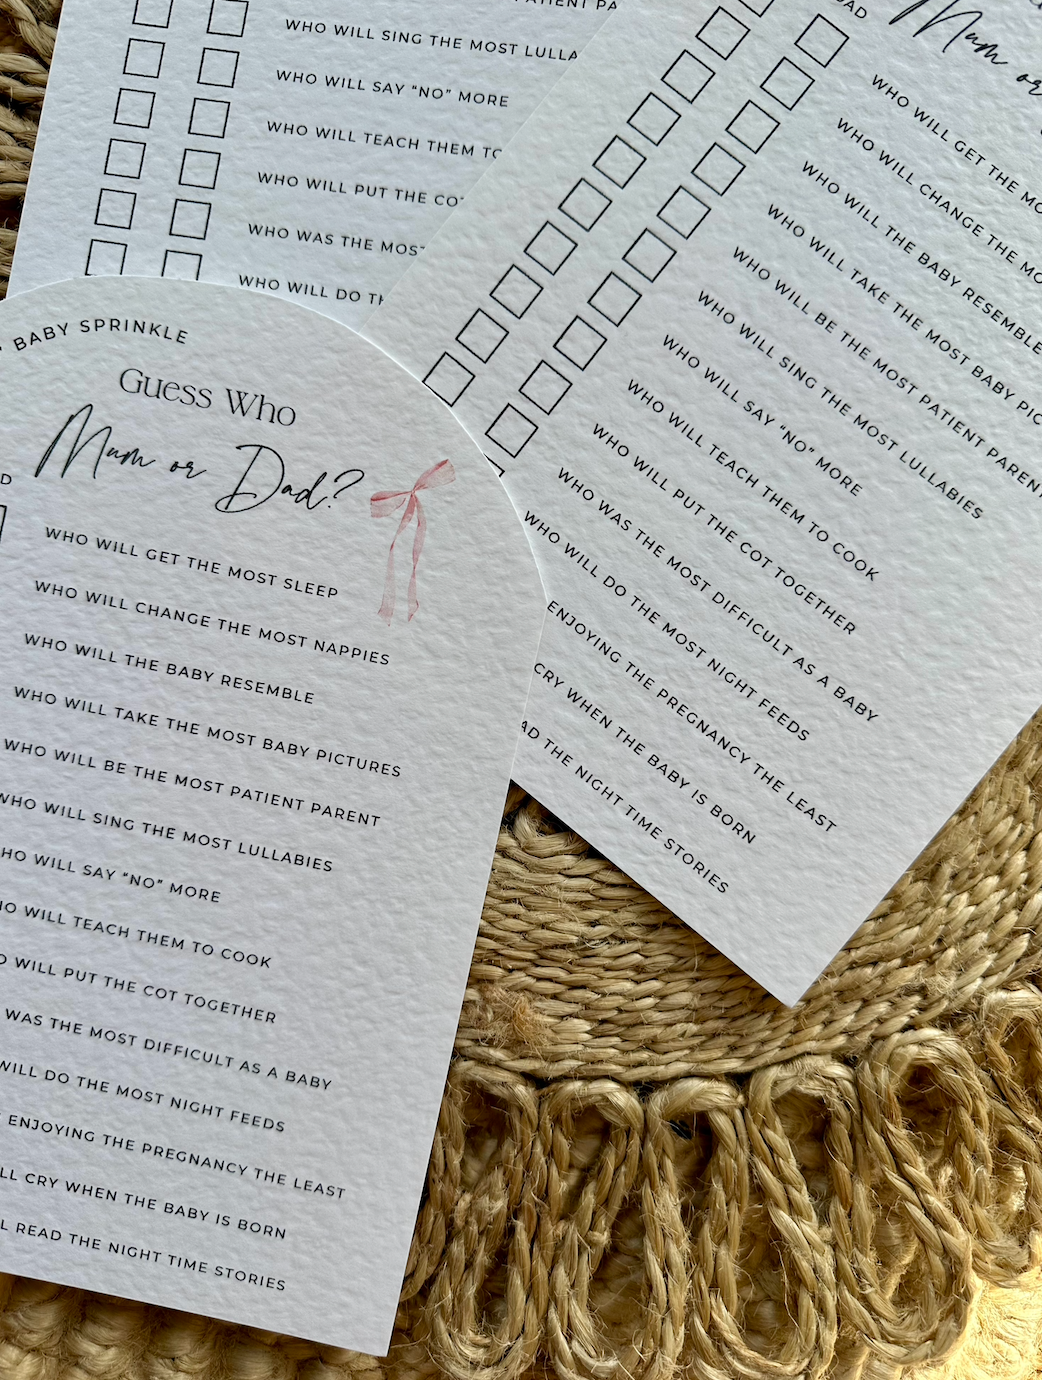 PATIENT PA
WHO WILL SING THE MOST LULLA
WHO WILL SAY “NO” MORE
WHO WILL TEACH THEM TO
WHO WILL PUT THE CO
WHO WAS THE MOS
WHO WILL DO TH
DAD
Mum or
WHO WILL GET THE MO
WHO WILL CHANGE THE MO
WHO WILL THE BABY RESEMBLE
WHO WILL TAKE THE MOST BABY PIC
WHO WILL BE THE MOST PATIENT PARENT
WHO WILL SING THE MOST LULLABIES
WHO WILL SAY “NO” MORE
WHO WILL TEACH THEM TO COOK
WHO WILL PUT THE COT TOGETHER
WHO WAS THE MOST DIFFICULT AS A BABY
WHO WILL DO THE MOST NIGHT FEEDS
ENJOYING THE PREGNANCY THE LEAST
CRY WHEN THE BABY IS BORN
AD THE NIGHT TIME STORIES
BABY SPRINKLE
Guess Who
Mum or Dad?
D
WHO WILL GET THE MOST SLEEP
WHO WILL CHANGE THE MOST NAPPIES
WHO WILL THE BABY RESEMBLE
WHO WILL TAKE THE MOST BABY PICTURES
WHO WILL BE THE MOST PATIENT PARENT
WHO WILL SING THE MOST LULLABIES
HO WILL SAY “NO” MORE
HO WILL TEACH THEM TO COOK
O WILL PUT THE COT TOGETHER
WAS THE MOST DIFFICULT AS A BABY
WILL DO THE MOST NIGHT FEEDS
ENJOYING THE PREGNANCY THE LEAST
LL CRY WHEN THE BABY IS BORN
L READ THE NIGHT TIME STORIES